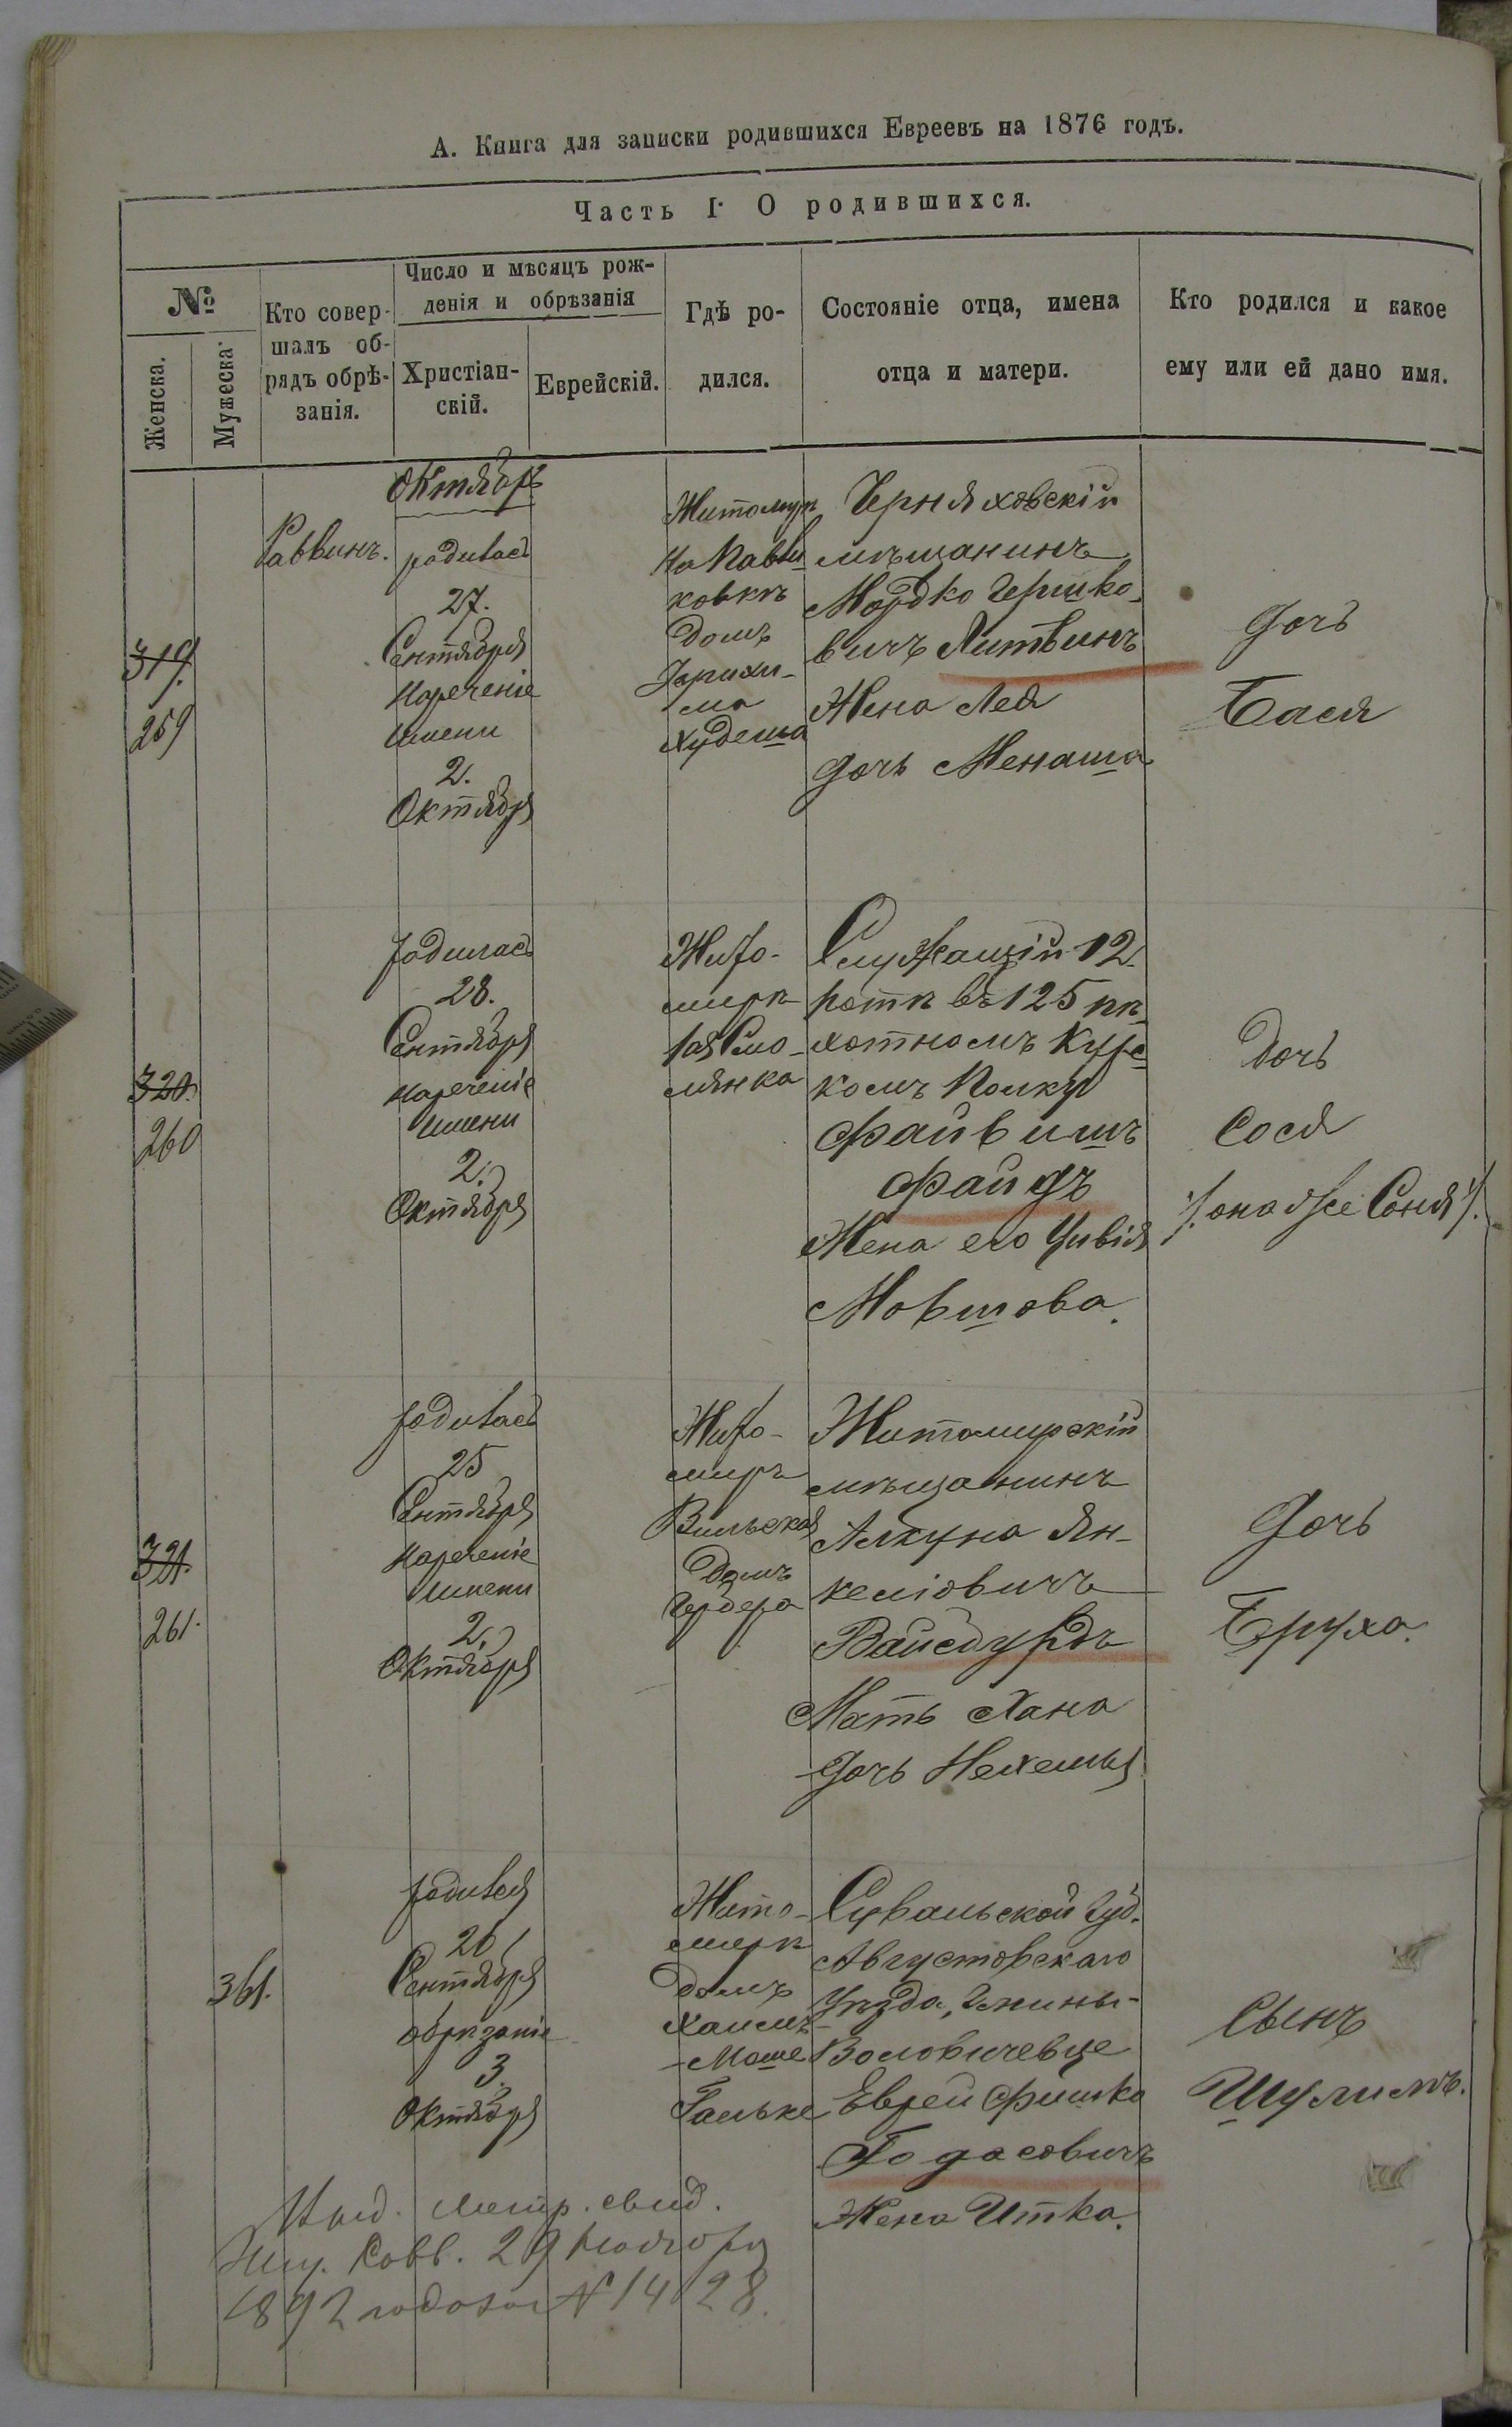 А. Книга для записки родившихся Евреевъ на 1876 годъ.
Часть I. О родившихся.
№
Женска.
Мужеска.
Кто совер-
шалъ об-
рядъ обрѣ-
занія.
Число и мѣсяцъ рож-
денія и обрѣзанія
Христіан-
скій.
Еврейскій.
Гдѣ ро-
дился.
Состояніе отца, имена
отца и матери.
Кто родился и какое
ему или ей дано имя.
Октябрь
319.
259
Раввинъ.
родилась
27.
Сентября
Нареченіе
имени
2.
Октября
Житомиръ
На Павли
ковкѣ
домъ
Худеша
Черняховскій
мѣщанинъ
Мордко Гершко-
вичъ Литвинъ
Жена Лея
дочь Менаша
дочь
Бася
320.
260
родилась
28.
Сентября
нареченіе
имени
2.
Октября
Жито-
миръ
мянка
Служащій 12.
ротѣ въ 125 пѣ
хотномъ Курс
комъ Полку
Файвишъ
Файдъ
Жена его Цивія
Мовшова.
дочь
Сося
/. она же Соня /.
321.
261.
родилась
25
Сентября
нареченіе
имени
2.
Октября
Жито-
миръ
Вильская
Домъ
Гербера
Житомирскій
мѣщанинъ
Алкуна Ян-
келіовичъ
Вайсбурдъ
Мать Хана
дочь Нехемья
Дочь
Бруха.
361.
родился
26
Сентября
обрѣзаніе
3.
Октября
Жито-
мирѣ
домъ
Хаимъ-
Моше
Гальке
Сувальской Губ.
Августовскаго
Уѣзда, Гмины-
Воловичевце
Еврей Фишко
Годасовичъ
Жена Итка.
Сынъ
Шулимъ.
Выд. метр. свид.
Жит. Равв. 29 Ноября
1892 года за № 1428.